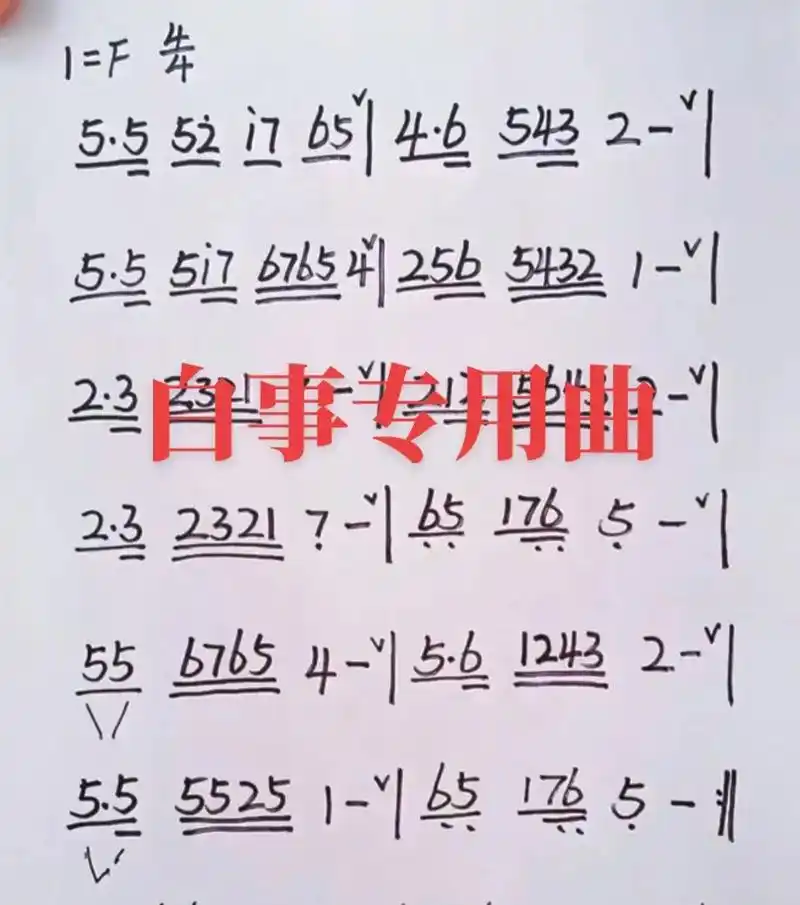 1=F 4/4
5·5 5i i7 65 ᵛ| 4·6 543 2 - ᵛ|
5·5 5i7 6765 4 ᵛ| 256 5432 1 - ᵛ|
2·3 2321 - ᵛ| 212 - ᵛ|
白事专用曲
2·3 2321 7̣ - ᵛ| 6̣5̣ 17̣6̣ 5̣ - ᵛ|
55 6765 4 - ᵛ| 5·6 1243 2 - ᵛ|
5·5 5525 1 - ᵛ| 6̣5̣ 17̣6̣ 5̣ - :‖